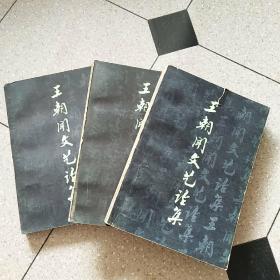 王朝闻文艺论集
王朝闻
王朝闻文艺论集